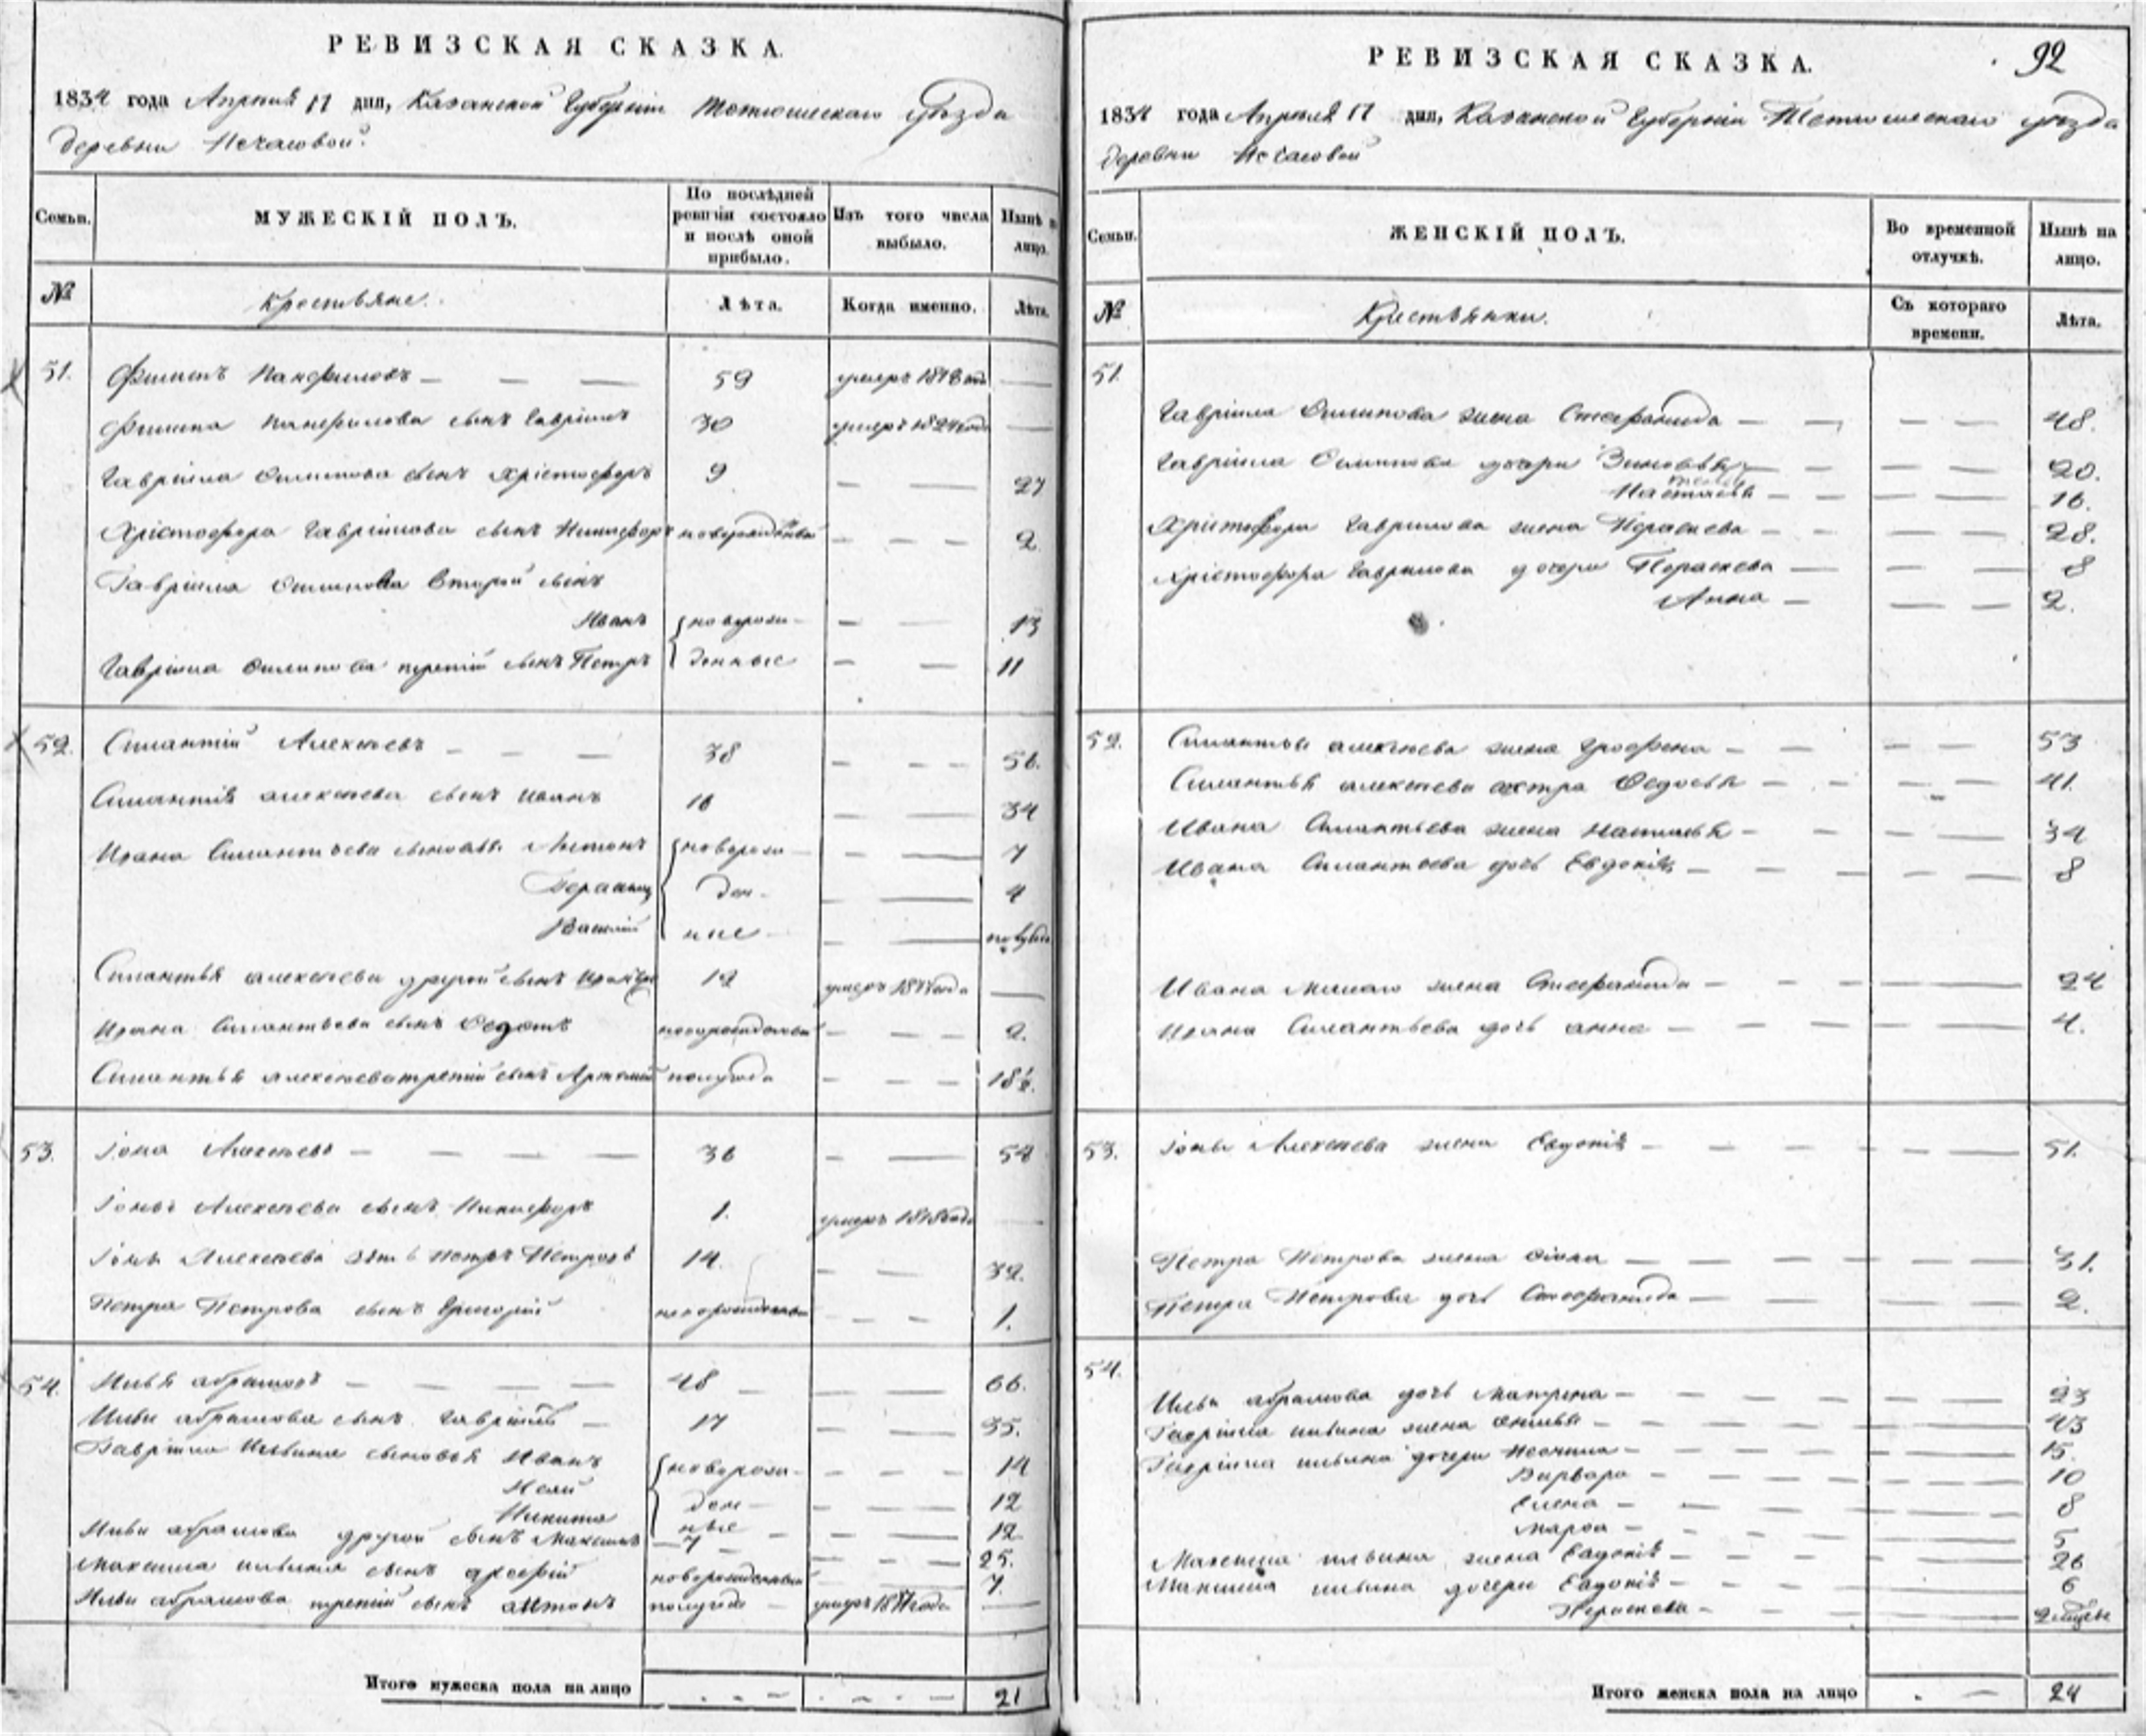 РЕВИЗСКАЯ СКАЗКА.
1834 года Апреля 17 дня, Казанской Губернии Тетюшскаго уѣзда
деревни Нечасовой.
Семьи.
МУЖЕСКІЙ ПОЛЪ.
По послѣдней ревизіи состояло и послѣ оной прибыло.
Изъ того числа выбыло.
Нынѣ на лицо.
№
Крестьяне.
Лѣта.
Когда именно.
Лѣта.
51. Филипъ Панфиловъ — — — 59 умеръ 1818 года —
Филипа Панфилова сынъ Гаврiилъ 30 умеръ 1824 года —
Гаврiила Филипова сынъ Христофоръ 9 — — 27
Христофора Гаврiилова сынъ Никифоръ новорожденный — — — 2
Гаврiила Филипова второй сынъ
Иванъ новорож- — — 13
Гаврiила Филипова третiй сынъ Петръ денные — — 11
52. Силантiй Алексѣевъ — — — 38 — — — 56.
Силантiя Алексѣева сынъ Иванъ 16 — — 34
Ивана Силантьева сыновья Антонъ новорож- — — 7
Герасимъ ден- — — 4
Василiй ные — — полгода
Силантья Алексѣева другой сынъ 12 умеръ —
Ивана Силантьева сынъ Федотъ новорожденный — — — 2.
Силантья Алексѣева третiй сынъ Артемiй полугода — — — 18½.
53. Iона Алексѣевъ — — — — 36 — — 54
Iоны Алексѣева сынъ Никифоръ 1. умеръ 1818 года —
Iоны Алексѣева зять Петръ Петровъ 14. — — 32.
Петра Петрова сынъ Григорiй новорожденный — — — 1.
54. Илья Абрамовъ — — — — 48 — — — 66.
Ильи Абрамова сынъ Гаврiилъ — 17 — — 35.
Гаврiила Ильина сыновья Иванъ новорож- — — — 14
ден- — — 12
Никита ные — — — 12
Ильи Абрамова другой сынъ Максимъ — 7 — — — — 25.
Максима Ильина сынъ новорожденный — — 7.
Ильи Абрамова третiй сынъ Антонъ полугода — умеръ —
Итого мужеска пола на лицо - - - - - - - 21
РЕВИЗСКАЯ СКАЗКА.
92
1834 года Апреля 17 дня, Казанской Губернии Тетюшскаго уѣзда
деревни Нечасовой
Семьи.
ЖЕНСКІЙ ПОЛЪ.
Во временной отлучкѣ.
Нынѣ на лицо.
№
Крестьянки.
Съ котораго времени.
Лѣта.
51.
Гаврiила Филипова жена Стефанида — — — — 48.
Гаврiила Филипова дочери Зиновья — — — — 20.
Настасья — — — — 16.
Христофора Гаврилова жена Парасковья — — — — 28.
Христофора Гаврилова дочери Параскева — — — 8
Анна — — — 2.
52. Силантья Алексѣева жена Грофена — — — — 53
Силантья Алексѣева сестра Федосья — — — — 41.
Ивана Силантьева жена Наталья — — — — 34
Ивана Силантьева дочь Евдокiя — — — — 8
Ивана жена Стефанида — — — — 24
Ивана Силантьева дочь Анна — — — — 4.
53. Iоны Алексѣева жена Евдокiя — — — — 51.
Петра Петрова жена — — — — 31.
Петра Петрова дочь Стефанида — — — — 2.
54.
Ильи Абрамова дочь Матрена — — — — 23
Гаврiила Ильина жена — — — — 43
Гаврiила Ильина дочери — — — — 15.
Варвара — — — — 10
Елена — — — — 8
Марфа — — — — 5
Максима Ильина жена Евдокiя — — — — 26
Максима Ильина дочери Евдокiя — — — — 6
Параскева — — — 2 мѣсяцы
Итого женска пола на лицо . — 24